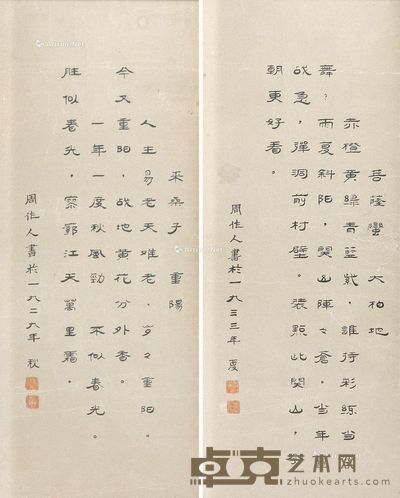 菩薩蠻 大柏地
赤橙黄緑青藍紫，誰持彩練當
舞，雨夏斜陽，関山陣〻蒼。當年
战急，彈洞前村壁。裝點此関山，
朝更好看。
周作人書於一九三三年 夏
采桑子 重陽
人生易老天难老，岁〻重阳。
今又重阳，战地黄花分外香。
一年一度秋風勁，不似春光。
胜似春光，寥廓江天萬里霜。
周作人書於一九二九年 秋
卓克艺术网
www.zhuokearts.com